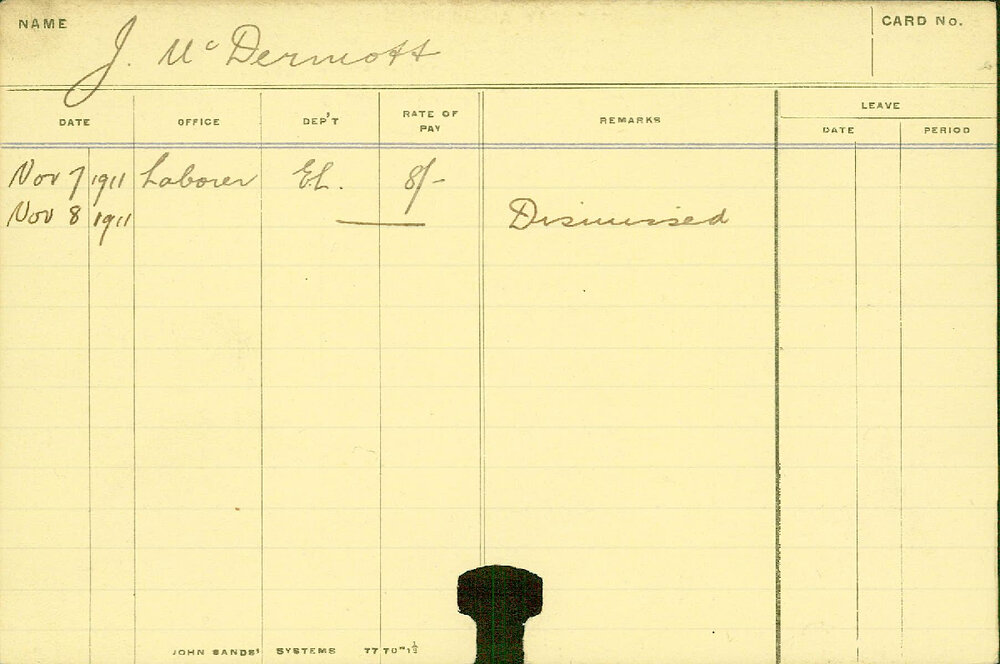 NAME J. McDermott CARD No.
LEAVE
DATE OFFICE DEP'T RATE OF PAY REMARKS DATE PERIOD
Nov 7 1911 Laborer E.L. 8/-
Nov 8 1911 —— Dismissed
JOHN SANDS' SYSTEMS